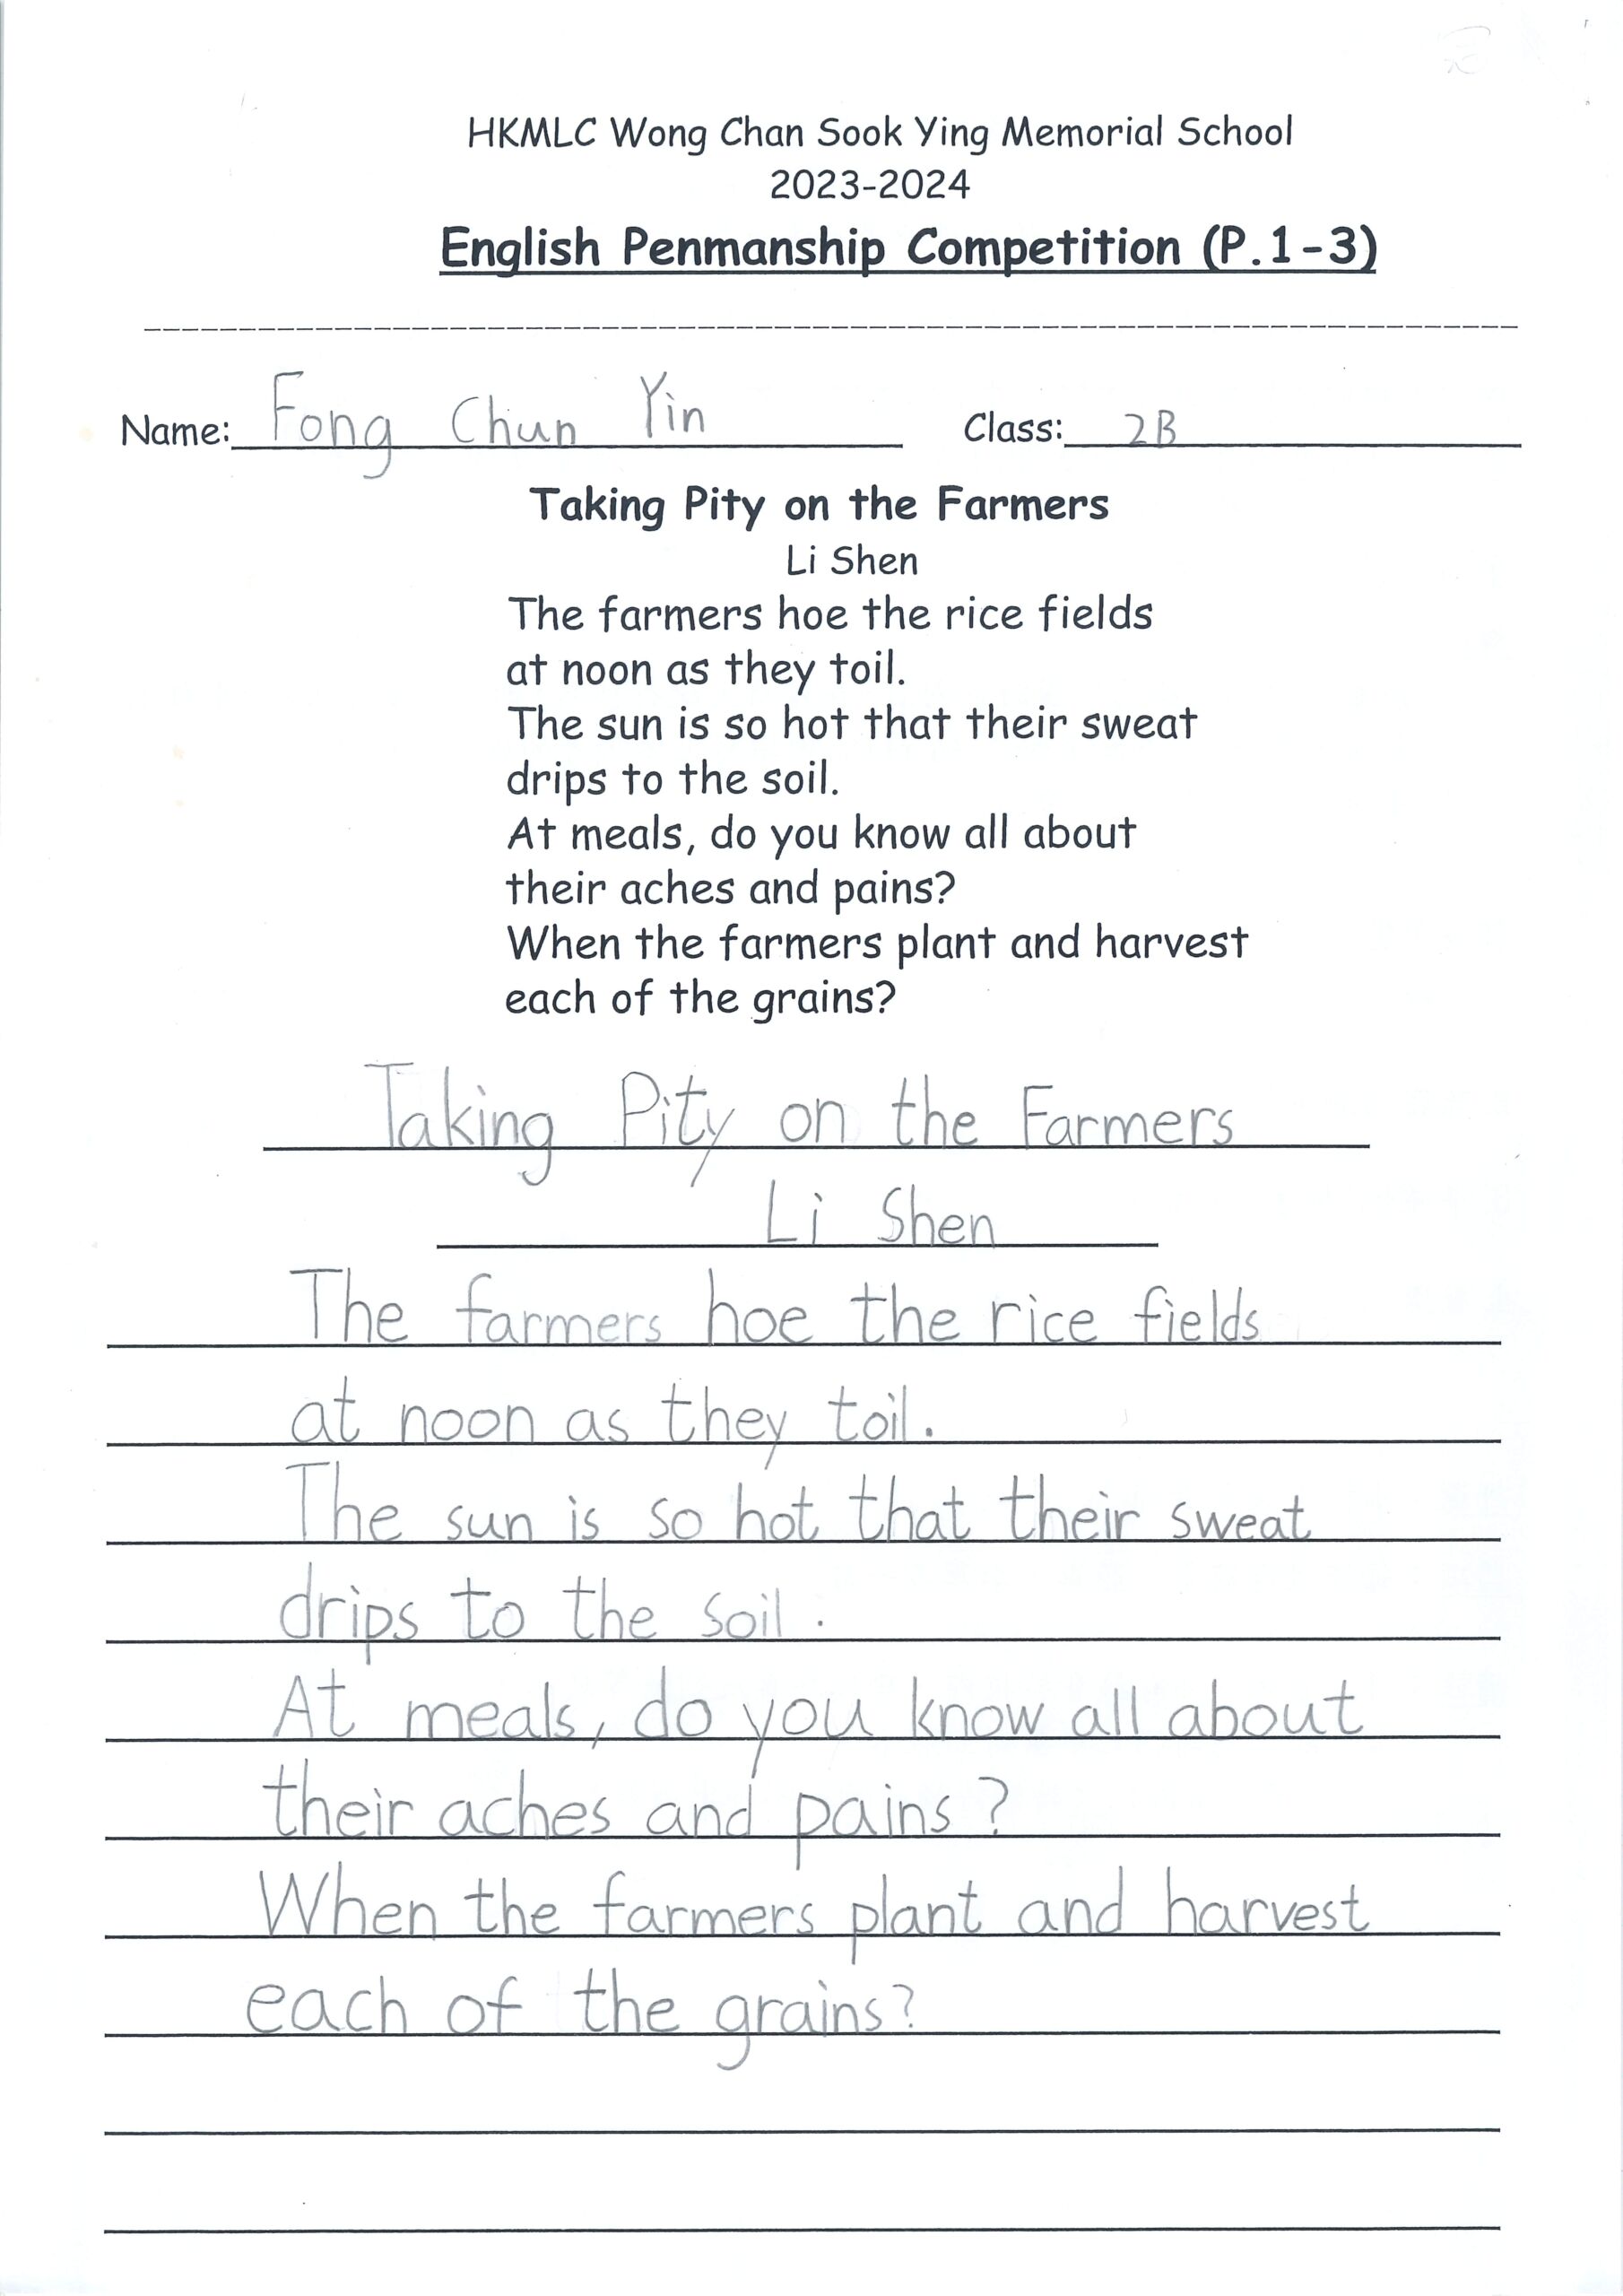 HKMLC Wong Chan Sook Ying Memorial School
2023-2024
English Penmanship Competition (P.1-3)
Name: Fong Chun Yin Class: 2B
Taking Pity on the Farmers
Li Shen
The farmers hoe the rice fields
at noon as they toil.
The sun is so hot that their sweat
drips to the soil.
At meals, do you know all about
their aches and pains?
When the farmers plant and harvest
each of the grains?
Taking Pity on the Farmers
Li Shen
The farmers hoe the rice fields
at noon as they toil.
The sun is so hot that their sweat
drips to the soil.
At meals, do you know all about
their aches and pains?
When the farmers plant and harvest
each of the grains?